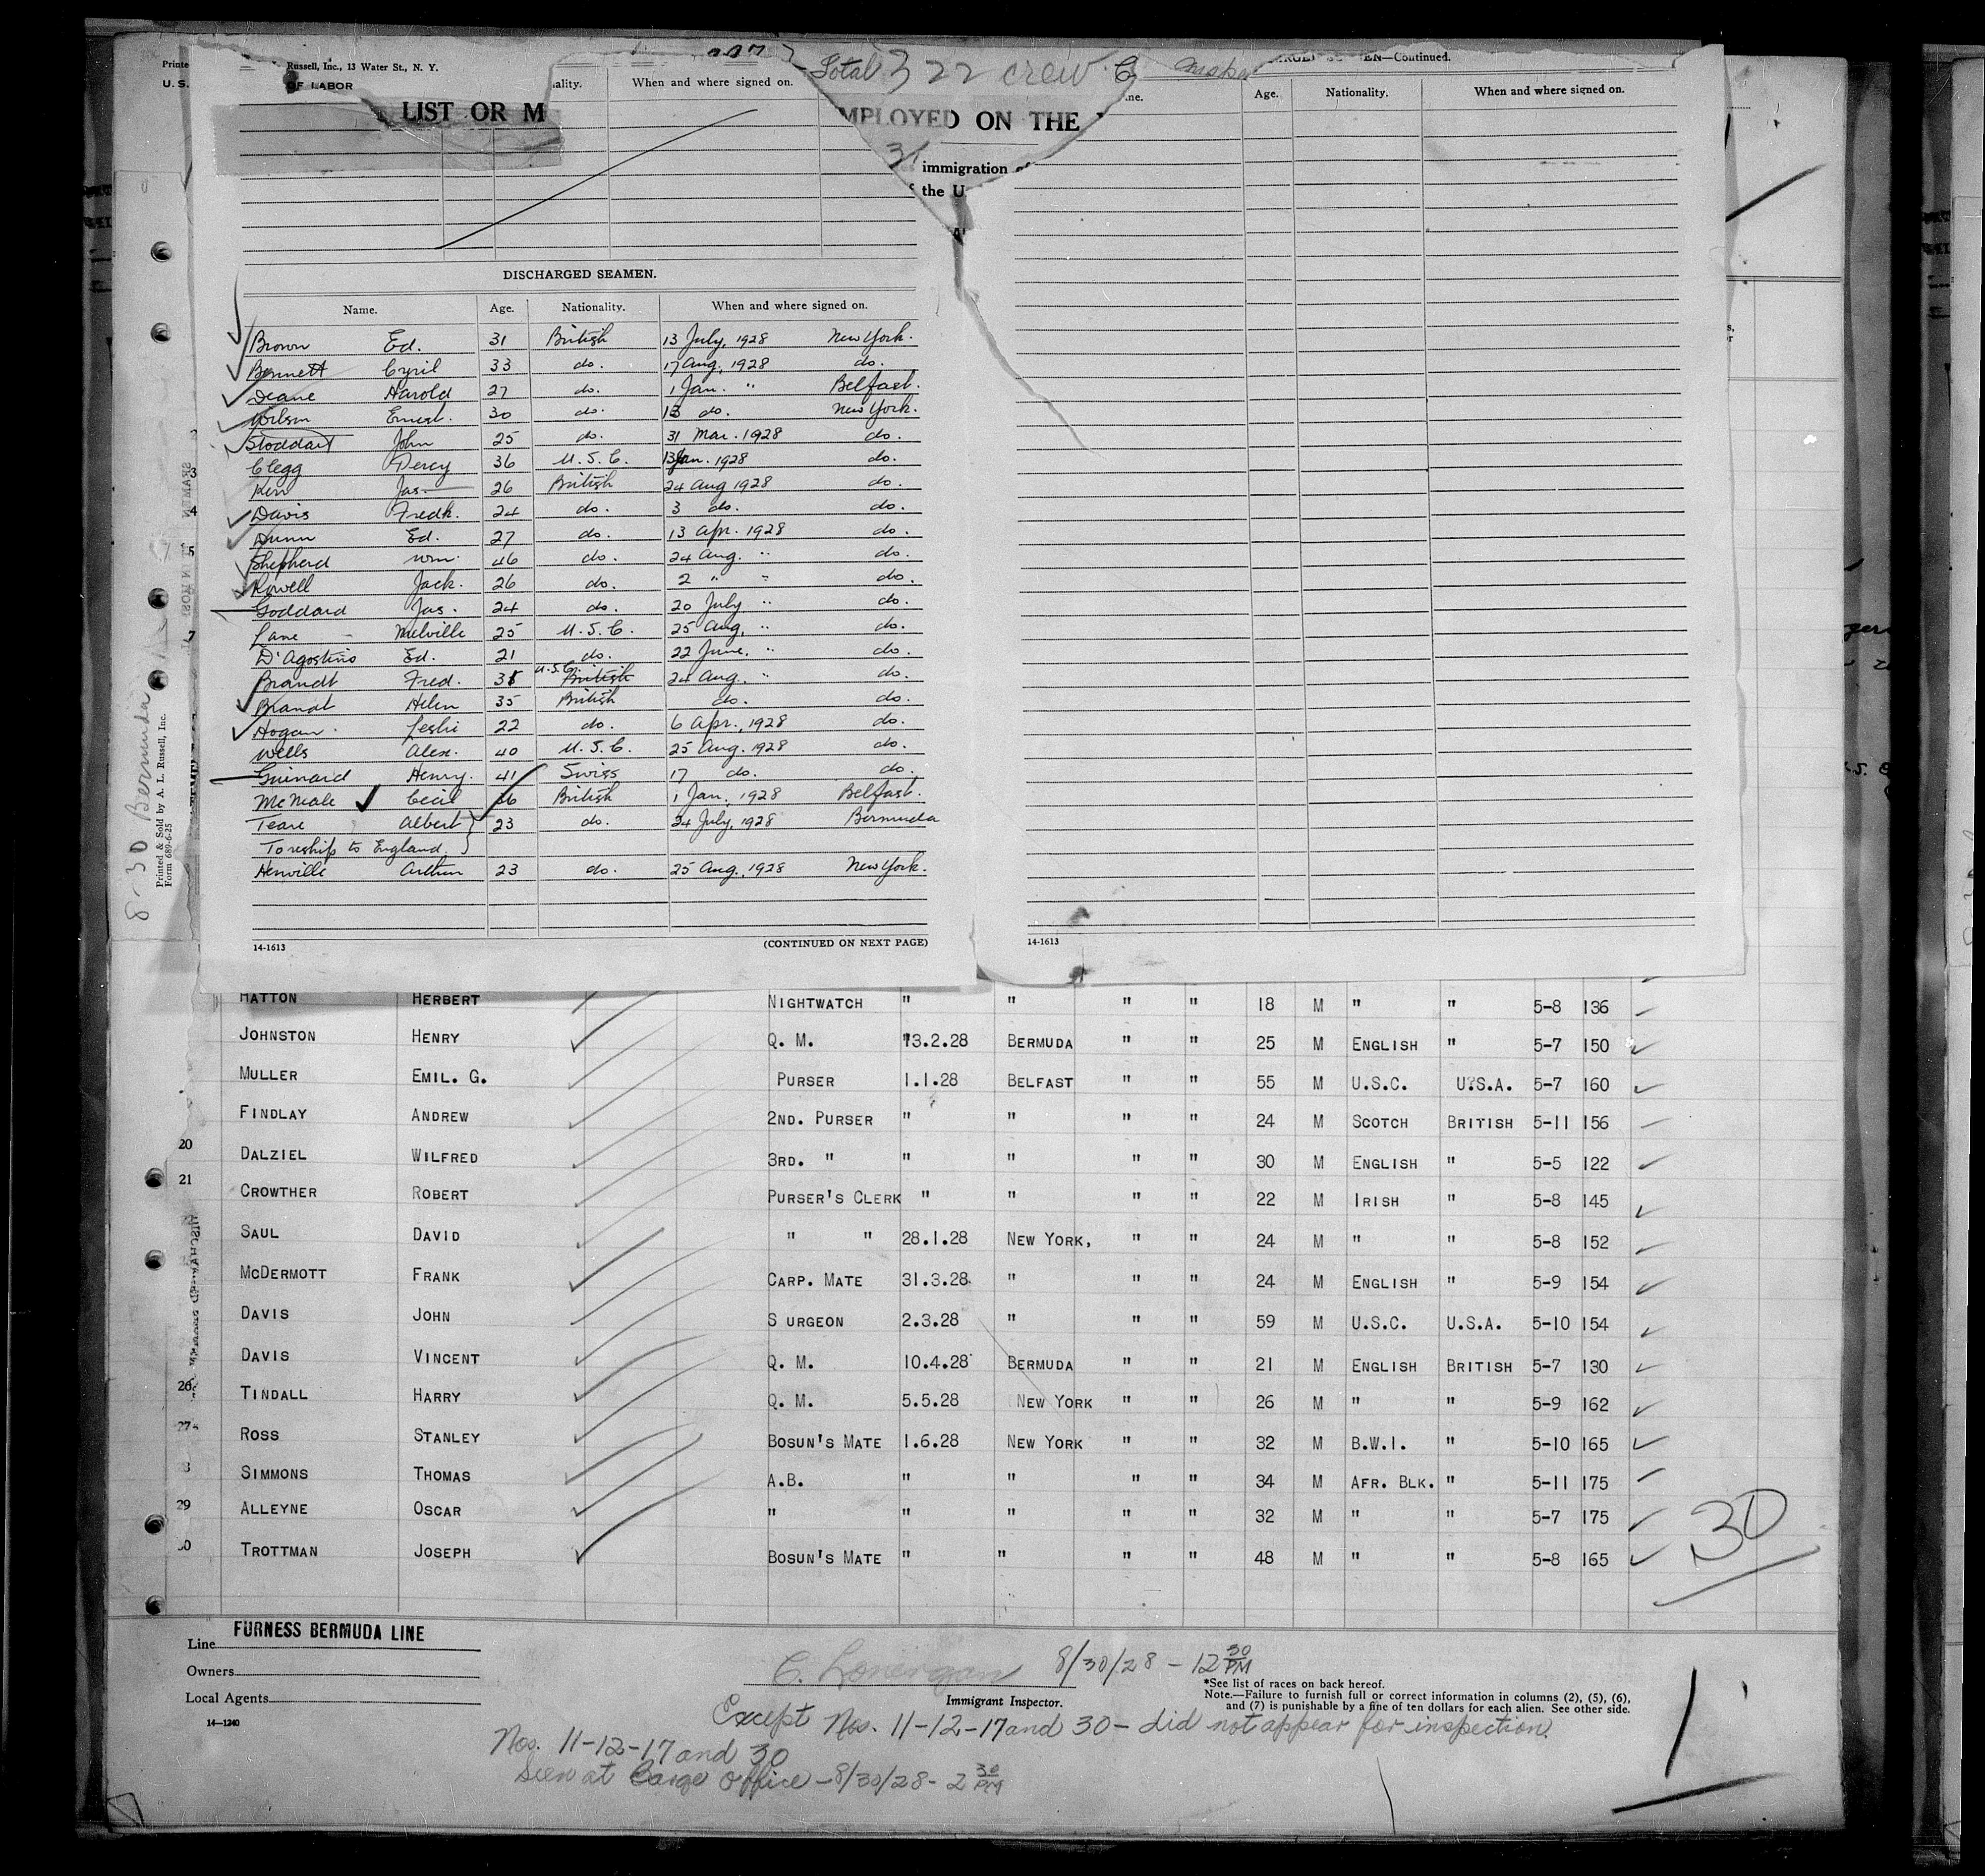 Printe
Russell, Inc., 13 Water St., N. Y.
U. S.
OF LABOR
LIST OR M
ality.
When and where signed on.
Total 322 crew
EN—Continued.
MPLOYED ON THE
31
immigration of
the U
ne.
Age.
Nationality.
When and where signed on.
DISCHARGED SEAMEN.
Name. Age. Nationality. When and where signed on.
Brown Ed. 31 British 13 July, 1928 New York.
Bennett Cyril 33 do. 17 Aug, 1928 do.
Deane Harold 27 do. 1 Jan. " Belfast.
Wilson Ernest. 30 do. 13 do. New York.
Stoddart John 25 do. 31 Mar. 1928 do.
Clegg Percy 36 U.S.C. 13 Jan. 1928 do.
Kerr Jas. 26 British 24 Aug 1928 do.
Davis Fredk. 24 do. 3 do. do.
Dunn Ed. 27 do. 13 Apr. 1928 do.
Shepherd Wm. 46 do. 24 Aug. " do.
Rowell Jack. 26 do. 2 " " do.
Goddard Jas. 24 do. 20 July " do.
Lane Melville 25 U.S.C. 25 Aug. " do.
D'Agostino Ed. 21 do. 22 June, " do.
Brandt Fred. 35 U.S.C. British 24 Aug. " do.
Brandt Helen 35 British do. do.
Hogan Leslie 22 do. 6 Apr., 1928 do.
Wells Alex. 40 U.S.C. 25 Aug. 1928 do.
Guinard Henry. 41 Swiss 17 do. do.
McNeale Cecil 36 British 1 Jan, 1928 Belfast.
Teare Albert 23 do. 24 July, 1928 Bermuda
To reship to England.
Henville Arthur 23 do. 25 Aug., 1928 New York.
14-1613
(CONTINUED ON NEXT PAGE)
14-1613
8-30 Bermuda
Printed & Sold by A. L. Russell, Inc.
Form 689-6-25
HATTON HERBERT NIGHTWATCH " " " " 18 M " " 5-8 136
JOHNSTON HENRY Q. M. 13.2.28 BERMUDA " " 25 M ENGLISH " 5-7 150
MULLER EMIL. G. PURSER 1.1.28 BELFAST " " 55 M U.S.C. U.S.A. 5-7 160
FINDLAY ANDREW 2ND. PURSER " " " " 24 M SCOTCH BRITISH 5-11 156
20 DALZIEL WILFRED 3RD. " " " " " 30 M ENGLISH " 5-5 122
21 CROWTHER ROBERT PURSER'S CLERK " " " " 22 M IRISH " 5-8 145
SAUL DAVID " " 28.1.28 NEW YORK, " " 24 M " " 5-8 152
MCDERMOTT FRANK CARP. MATE 31.3.28. " " " 24 M ENGLISH " 5-9 154
DAVIS JOHN S URGEON 2.3.28 " " " 59 M U.S.C. U.S.A. 5-10 154
DAVIS VINCENT Q. M. 10.4.28 BERMUDA " " 21 M ENGLISH BRITISH 5-7 130
26 TINDALL HARRY Q. M. 5.5.28 NEW YORK " " 26 M " " 5-9 162
27 ROSS STANLEY BOSUN'S MATE 1.6.28 NEW YORK " " 32 M B.W.I. " 5-10 165
SIMMONS THOMAS A.B. " " " " 34 M AFR. BLK. " 5-11 175
29 ALLEYNE OSCAR " " " " " 32 M " " 5-7 175
TROTTMAN JOSEPH BOSUN'S MATE " " " " 48 M " " 5-8 165
30
Line FURNESS BERMUDA LINE
Owners
Local Agents
14—1240
C. Lonergan 8/30/28 - 12 30 PM
Immigrant Inspector.
*See list of races on back hereof.
Note.—Failure to furnish full or correct information in columns (2), (5), (6),
and (7) is punishable by a fine of ten dollars for each alien. See other side.
Except Nos. 11-12-17 and 30 - did not appear for inspection.
Nos. 11-12-17 and 30
Seen at Barge Office - 8/30/28 - 2 30 PM